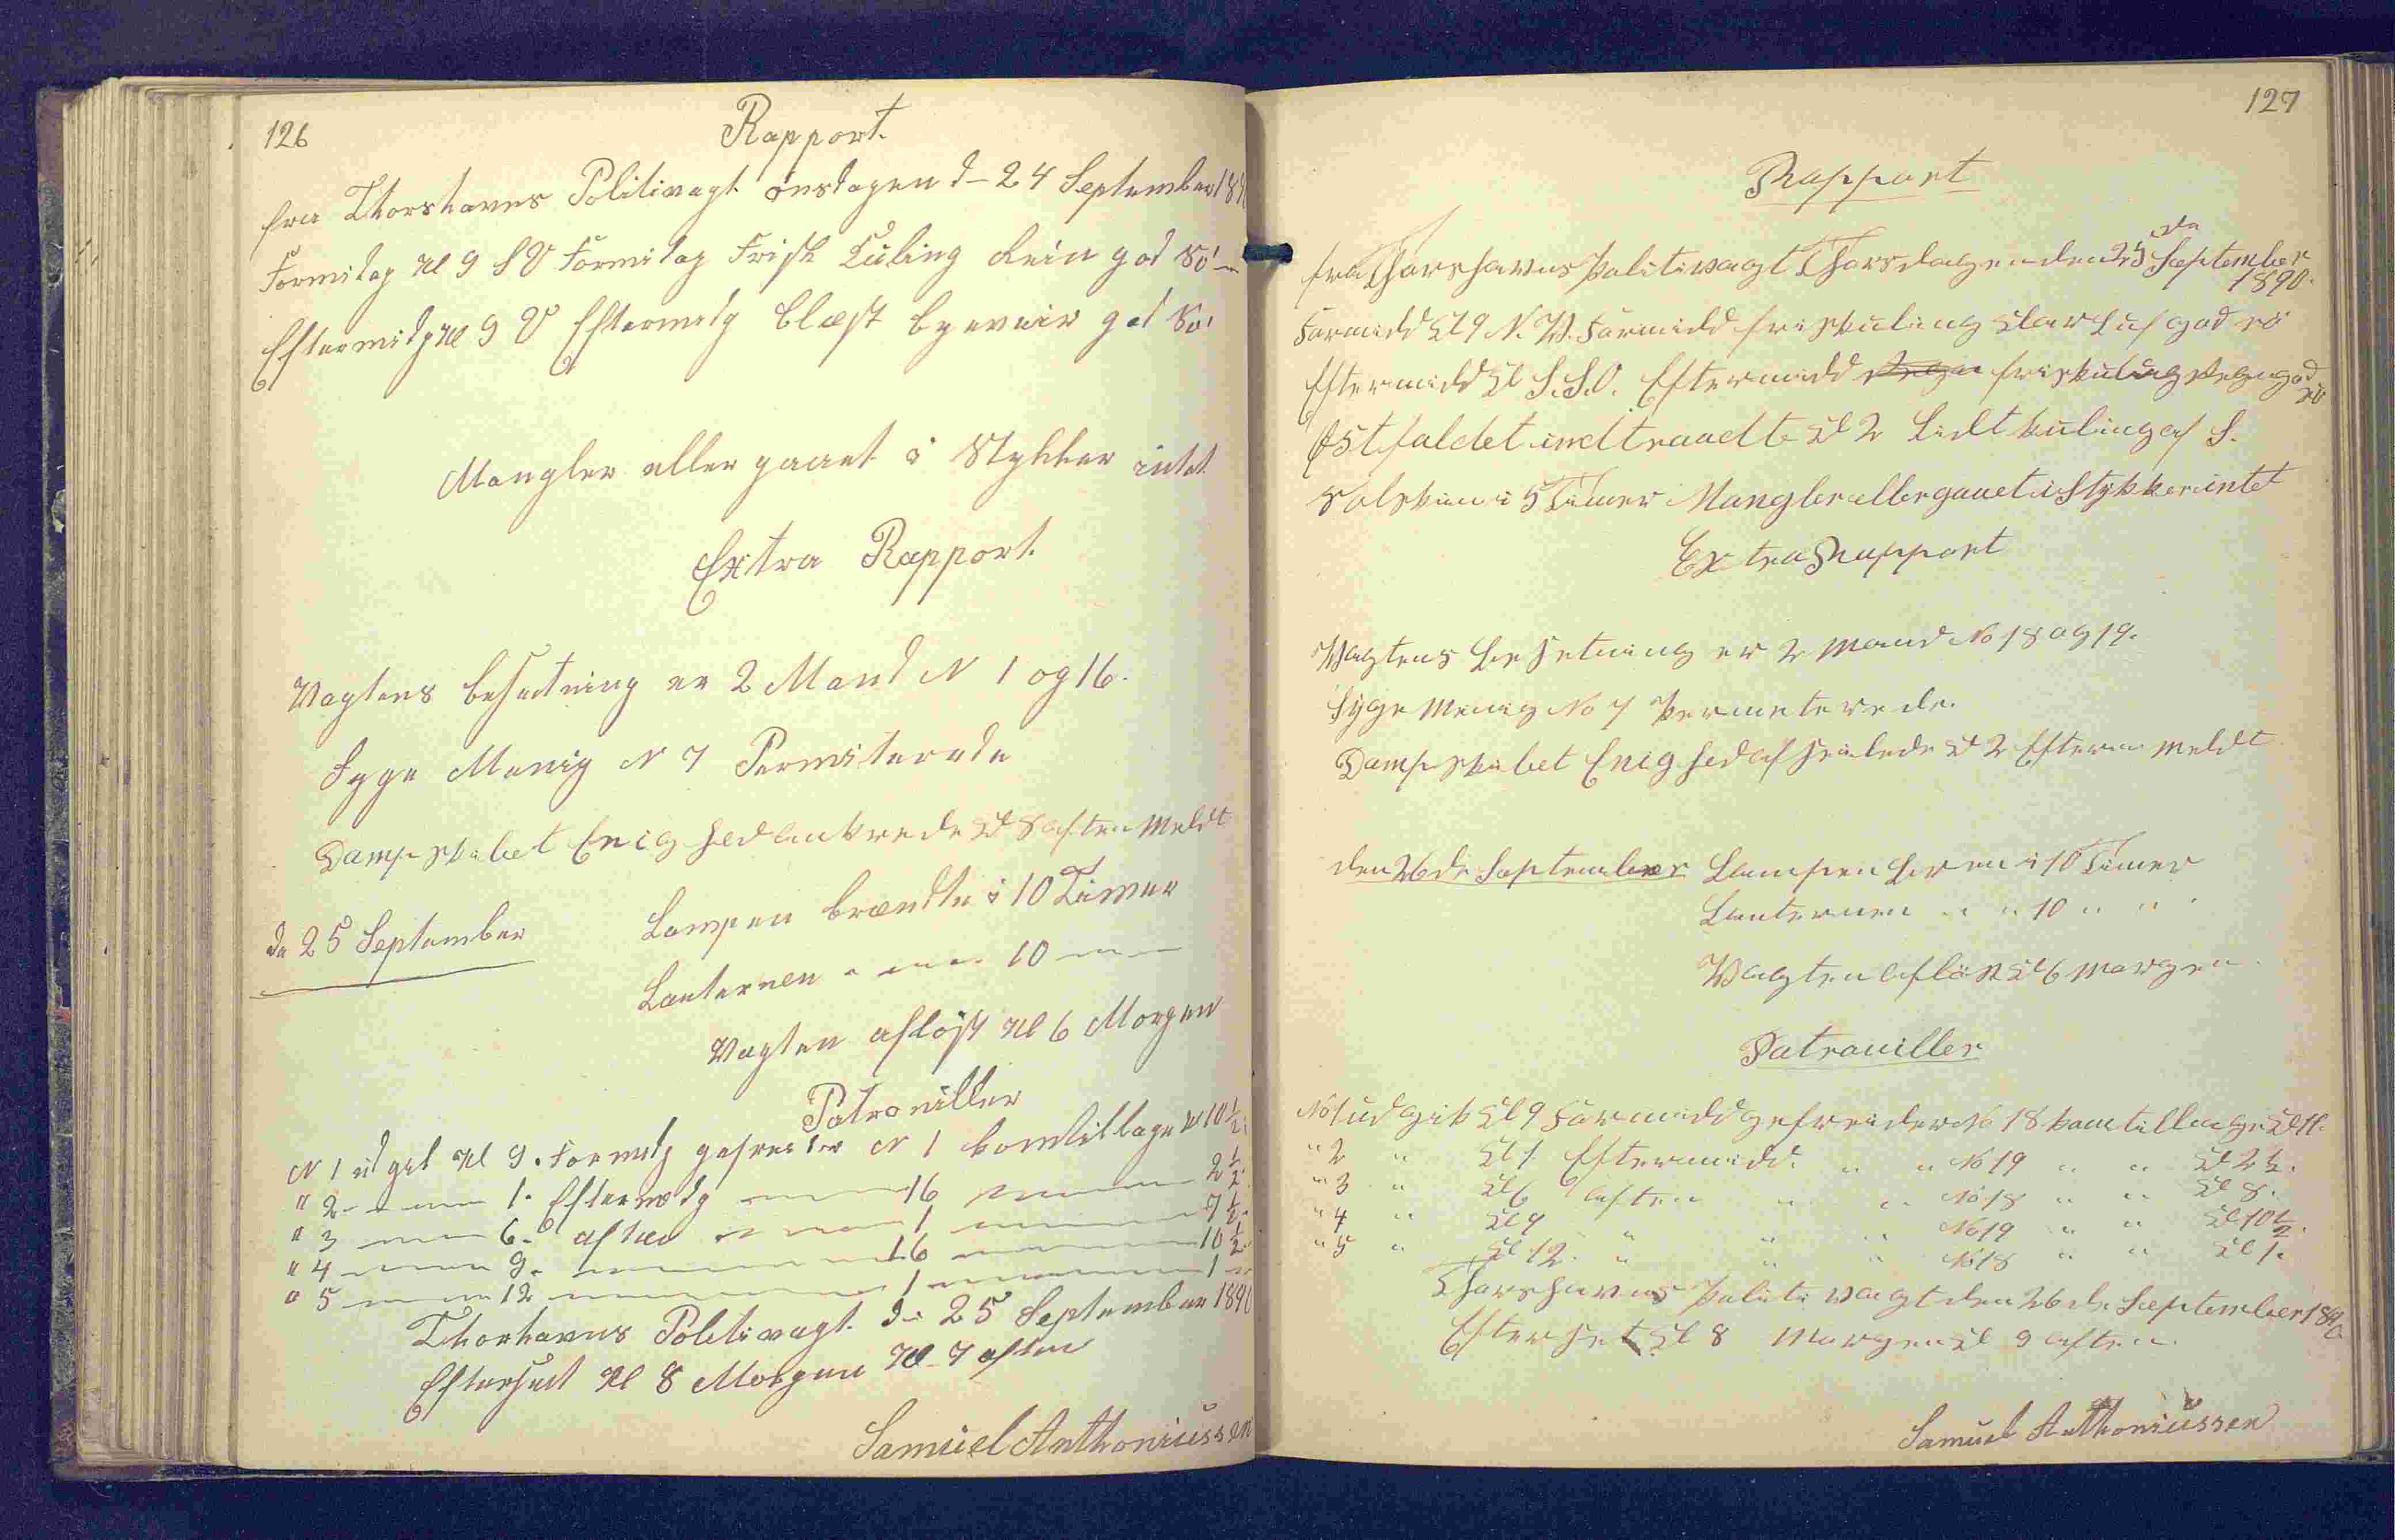 126
Rapport.
fra Thorshavns Politivagt onsdagen d- 24 September 1890
Formidag Kl 9 S V Formidag Frisk Kuling Rein god So
Eftermidg Kl 9 V Eftermidg blæst byeveir god So
Mangler eller gaaet i Stykker intet
Extra Rapport.
Vagtens besætning er 2 Mand N 1 og 16.
Syge Menig N 7 Permiterede
Dampskibet Enighed ankrede Kl 8 aften Meldt
de 25 September
Lampen brændte i 10 Timer
Lanternen " " 10 " "
Vagten afløst Kl 6 Morgen
Patroviller
N 1 udgik Kl 9. Formidg gefreider N 1 kom tilbage Kl 10 ½
" 2 - " - 1. Eftermidg - " - 16 - " - 2 ½
" 3 - " - 6. aften - " - 1 - " - 7 ½
" 4 - " - 9. - " - 16 - " - 10 ½
" 5 - " - 12 - " - 1 - " - 1 "
Thorhavns Politivagt. d- 25 September 1890
Efterset Kl 8 Morgen Kl 7 aften
Samuel Anthoniussen
127
Rapport
fra Thorshavns Politivagt Thorsdagen den 25 de September
1890.
Formidd Kl 9 N. W. Formidd frisk kuling klar Luf god sö
Eftermidd Kl S.S.O. Eftermidd frisk kuling Regn god
sö
Østfaldet indtraadte Kl 2 Lidt kuling af S.
Solskin i 5 Timer Mangler eller gaaet i Stykker intet
Extra Rapport
Wagtens besetning er 2 mand No 18 og 19.
Syge Menig No 7 Permeterede.
Dampskibet Enighed afseilede Kl 2 Efterm meldt
den 26 de September Lampen Bren i 10 Timer
Lanternen " " 10 " "
Wagten aflöst Kl 6 morgen.
Patrouiller
No 1 udgik Kl 9 Formidd gefreider No 18 kom tilbage Kl 11.
" 2 " Kl 1 Eftermidd. " " No 19 " " Kl 2 ½.
" 3 " Kl 6 aften " " No 18 " " Kl 8.
" 4 " Kl 9 " " " No 19 " " Kl 10 ½.
" 5 " Kl 12. " " " No 18 " " Kl 1.
Thorshavns Politi vagt den 26 de September 1890
Efterset Kl 8 Morgen Kl 9 aften.
Samuel Anthoniussen